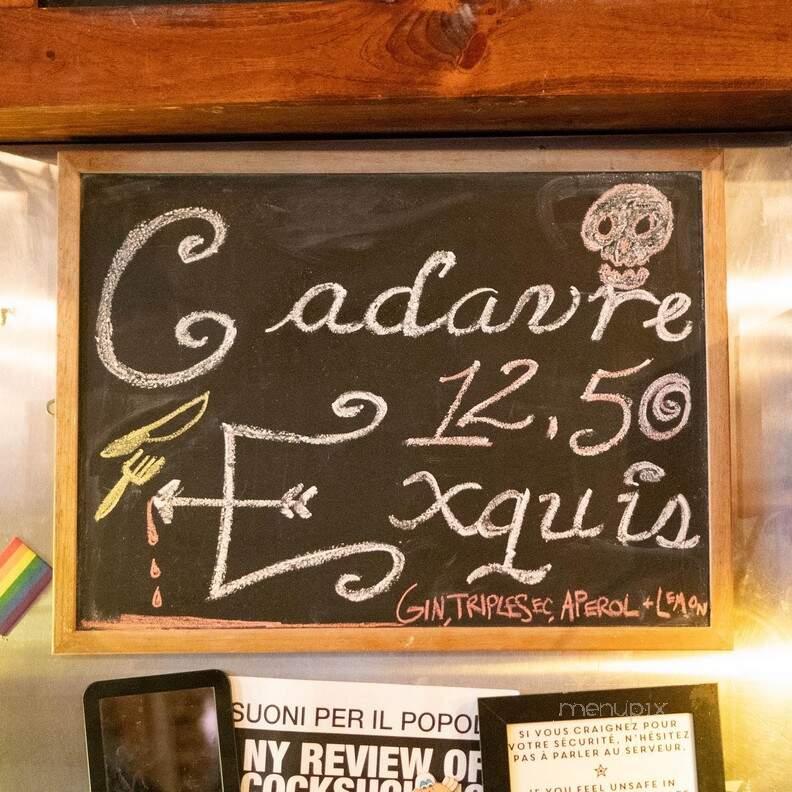 Cadavre
12.50
Exquis
GIN, TRIPLE SEC, APEROL + LEMON
menupix
SUONI PER IL POPOL
NY REVIEW OF
SI VOUS CRAIGNEZ POUR
VOTRE SÉCURITÉ, N'HÉSITEZ
PAS À PARLER AU SERVEUR.
IF YOU FEEL UNSAFE IN